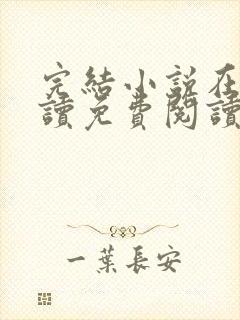 完結小說在
讀免費閱讀
一葉長安